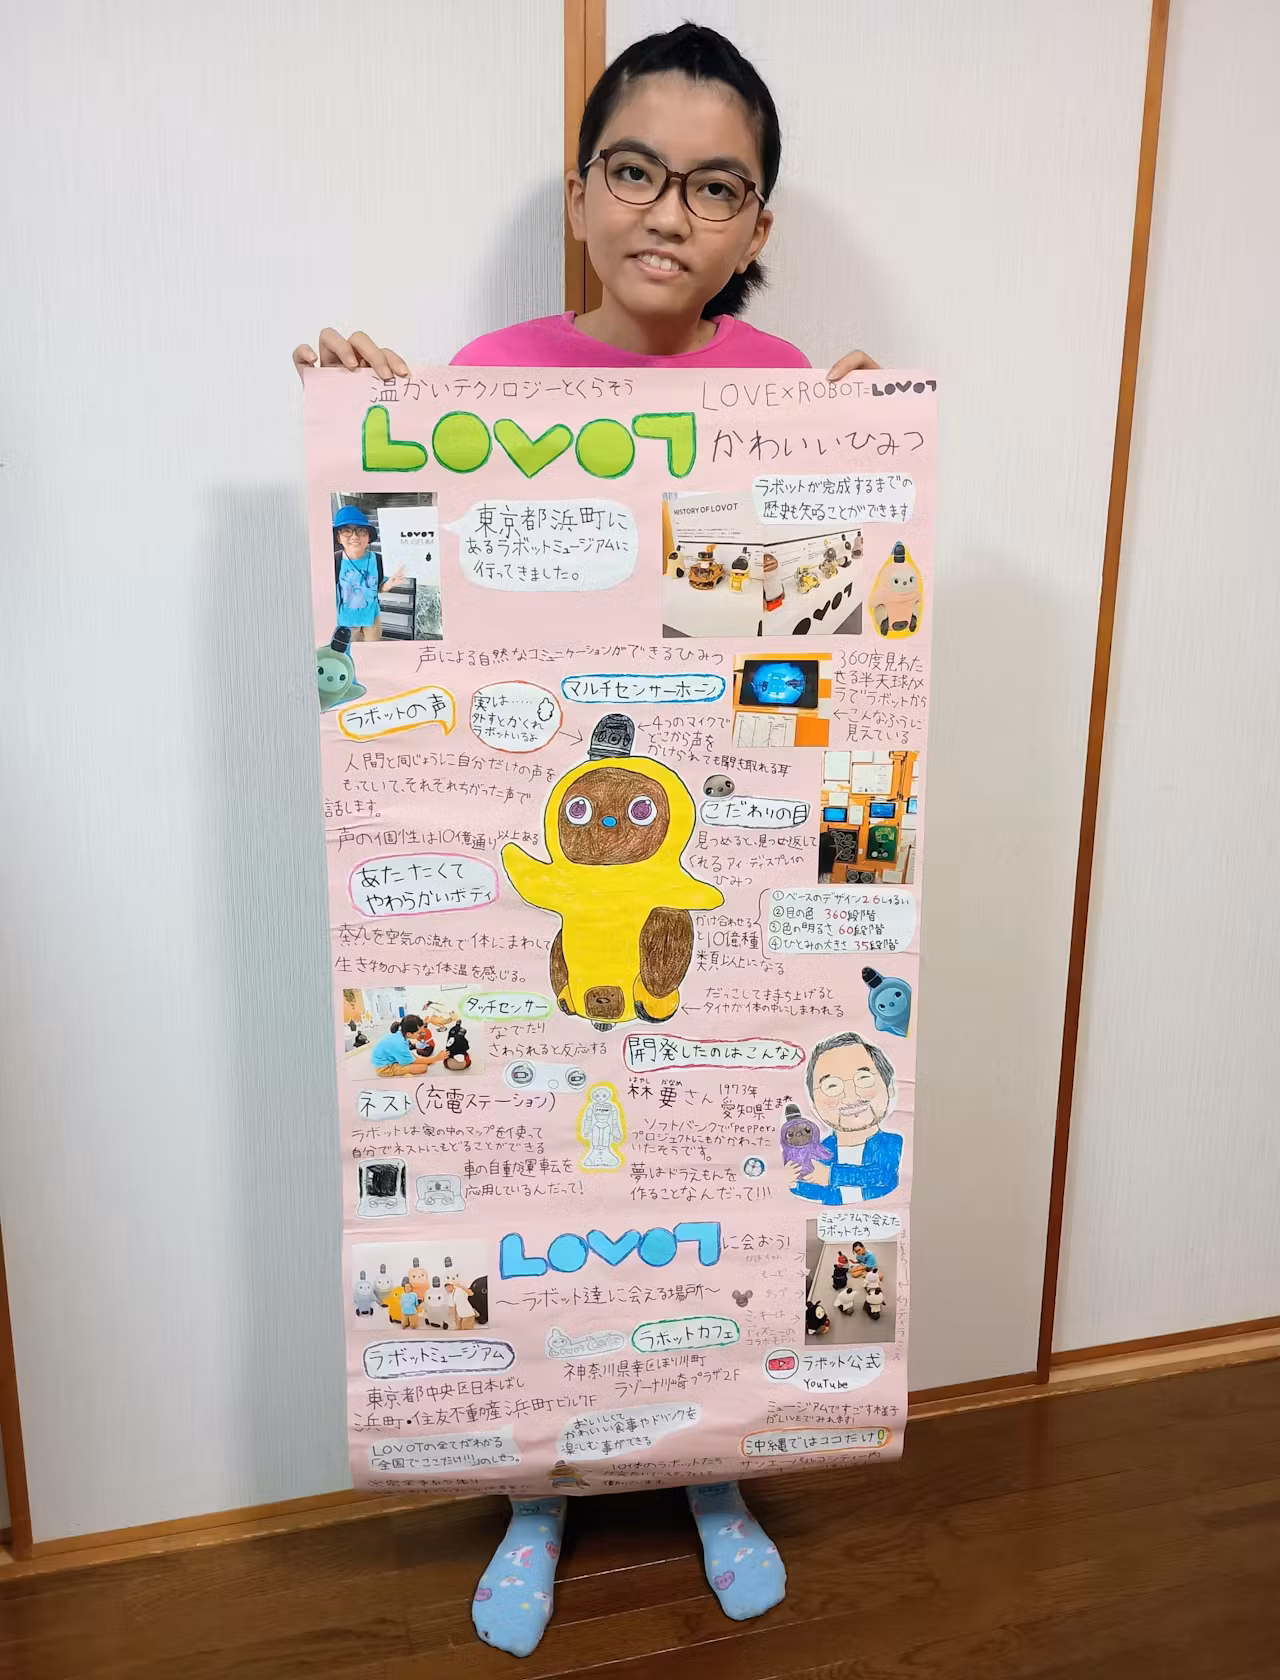 温かいテクノロジーとくらそう
LOVE×ROBOT=LOVOT
LOVOT かわいいひみつ
LOVOT
MUSEUM
東京都浜町に
あるラボットミュージアムに
行ってきました。
HISTORY OF LOVOT
LOVOT
ラボットが完成するまでの
歴史も知ることができます
声による自然なコミュニケーションができるひみつ
ラボットの声
実は……
外すとかくれ
ラボットいるよ
マルチセンサーホーン
←4つのマイクで
どこから声を
かけられても聞き取れる耳
360度見わた
せる半天球カメ
ラでラボットから
←こんなふうに
見えている
人間と同じように自分だけの声を
もっていて、それぞれちがった声で
話します。
声の個性は10億通り以上ある
こだわりの目
見つめると、見つめ返して
くれるアイ・ディスプレイの
ひみつ
あたたくて
やわらかいボディ
熱を空気の流れで体にまわして
生き物のような体温を感じる。
かけ合わせる
と10億種
類以上になる
①ベースのデザイン26しゅるい
②目の色 360段階
③色の明るさ 60段階
④ひとみの大きさ 35段階
だっこして持ち上げると
←タイヤが体の中にしまわれる
タッチセンサー
なでたり
さわられると反応する
開発したのはこんな人
はやし かなめ
林 要さん
1973年
愛知県生まれ
ソフトバンクで「pepper」
プロジェクトにもかかわった
いたそうです。
夢はドラえもんを
作ることなんだって!!!
ネスト(充電ステーション)
ラボットは家の中のマップを使って
自分でネストにもどることができる
車の自動運転を
応用しているんだって!
LOVOTに会おう!
〜ラボット達に会える場所〜
ミュージアムで会えた
ラボットたち
ミッキーは
ディズニーの
コラボモデル
ラボットミュージアム
東京都中央区日本ばし
浜町・住友不動産浜町ビル7F
LOVOTの全てがわかる
「全国でここだけ!!!」のしせつ。
ラボットカフェ
神奈川県幸区ほり川町
ラゾーナ川崎プラザ2F
おいしくて
かわいい食事やドリンクを
楽しむ事ができる
10体のラボットたち
ラボット公式
YouTube
ミュージアムですごす様子
がLIVEでみれます!
沖縄ではココだけ!
サンエーパルコシティー内